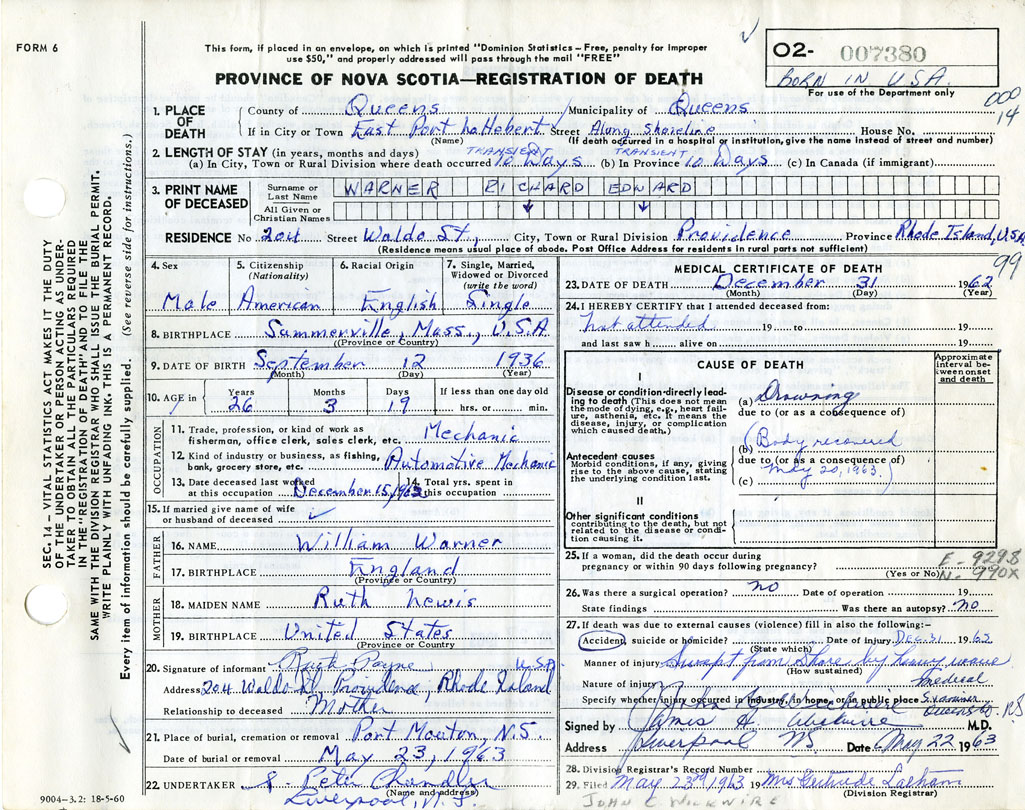 FORM 6
This form, if placed in an envelope, on which is printed "Dominion Statistics – Free, penalty for improper
use $50," and properly addressed will pass through the mail "FREE"
PROVINCE OF NOVA SCOTIA—REGISTRATION OF DEATH
02- 007380
BORN IN U.S.A.
For use of the Department only
000
14
SEC. 14 – VITAL STATISTICS ACT MAKES IT THE DUTY
OF THE UNDERTAKER OR PERSON ACTING AS UNDER-
TAKER TO OBTAIN ALL THE PARTICULARS REQUIRED
IN THE "REGISTRATION OF DEATH" AND TO FILE THE
SAME WITH THE DIVISION REGISTRAR WHO SHALL ISSUE THE BURIAL PERMIT.
WRITE PLAINLY WITH UNFADING INK. THIS IS A PERMANENT RECORD.
Every item of information should be carefully supplied. (See reverse side for instructions.)
1. PLACE OF DEATH
County of Queens Municipality of Queens
If in City or Town East Port LaHebert Street Along Shoreline House No.
(Name) (If death occurred in a hospital or institution, give the name instead of street and number)
2. LENGTH OF STAY (in years, months and days) TRANSIENT TRANSIENT
(a) In City, Town or Rural Division where death occurred 10 Days (b) In Province 10 Days (c) In Canada (if immigrant)
3. PRINT NAME OF DECEASED
Surname or Last Name WARNER RICHARD EDWARD
All Given or Christian Names
RESIDENCE No 204 Street Waldo St., City, Town or Rural Division Providence Province Rhode Island, USA
(Residence means usual place of abode. Post Office Address for residents in rural parts not sufficient)
99
4. Sex 5. Citizenship (Nationality) 6. Racial Origin 7. Single, Married, Widowed or Divorced (write the word)
Male American English Single
8. BIRTHPLACE Summerville, Mass., U.S.A
(Province or Country)
9. DATE OF BIRTH September 12 1936
(Month) (Day) (Year)
10. AGE in Years Months Days If less than one day old
26 3 19 hrs. or min.
OCCUPATION
11. Trade, profession, or kind of work as
fisherman, office clerk, sales clerk, etc. Mechanic
12. Kind of industry or business, as fishing,
bank, grocery store, etc. Automotive Mechanic
13. Date deceased last worked 14. Total yrs. spent in
at this occupation December 15, 1962 this occupation
15. If married give name of wife
or husband of deceased
FATHER
16. NAME William Warner
17. BIRTHPLACE England
(Province or Country)
MOTHER
18. MAIDEN NAME Ruth Lewis
19. BIRTHPLACE United States
(Province or Country)
20. Signature of informant Ruth Payne U.S.A
Address 204 Waldo St, Providence, Rhode Island
Relationship to deceased Mother
21. Place of burial, cremation or removal Port Mouton, N.S.
Date of burial or removal May 23, 1963
22. UNDERTAKER S. Peter Chandler
(Name and address)
Liverpool, N.S.
9004–3.2: 18-5-60
MEDICAL CERTIFICATE OF DEATH
23. DATE OF DEATH December 31 1962
(Month) (Day) (Year)
24. I HEREBY CERTIFY that I attended deceased from:
Not attended 19 to 19
and last saw h alive on 19
CAUSE OF DEATH
Approximate interval between onset and death
I
Disease or condition directly leading to death (This does not mean the mode of dying, e.g., heart failure, asthenia, etc. It means the disease, injury, or complication which caused death.)
(a) Drowning
due to (or as a consequence of)
(b) (Body recovered
due to (or as a consequence of)
May 20, 1963.)
(c)
Antecedent causes
Morbid conditions, if any, giving rise to the above cause, stating the underlying condition last.
II
Other significant conditions
contributing to the death, but not related to the disease or condition causing it.
25. If a woman, did the death occur during
pregnancy or within 90 days following pregnancy?
(Yes or No)
E-9298
N-990X
26. Was there a surgical operation? no Date of operation 19
State findings Was there an autopsy? No
27. If death was due to external causes (violence) fill in also the following:-
Accident, suicide or homicide? Date of injury DEC. 31 1962
(State which)
Manner of injury Swept from shore by heavy wave
(How sustained)
Nature of injury medical
Specify whether injury occurred in industry, in home, or in public place Examiner
Queens Co. NS
Signed by James H. Wickwire M.D.
Address Liverpool NS Date May 22 1963
28. Division Registrar's Record Number
29. Filed May 23rd 1963 19 Mrs Gertrude Latham
(Division Registrar)
JOHN C WICKWIRE